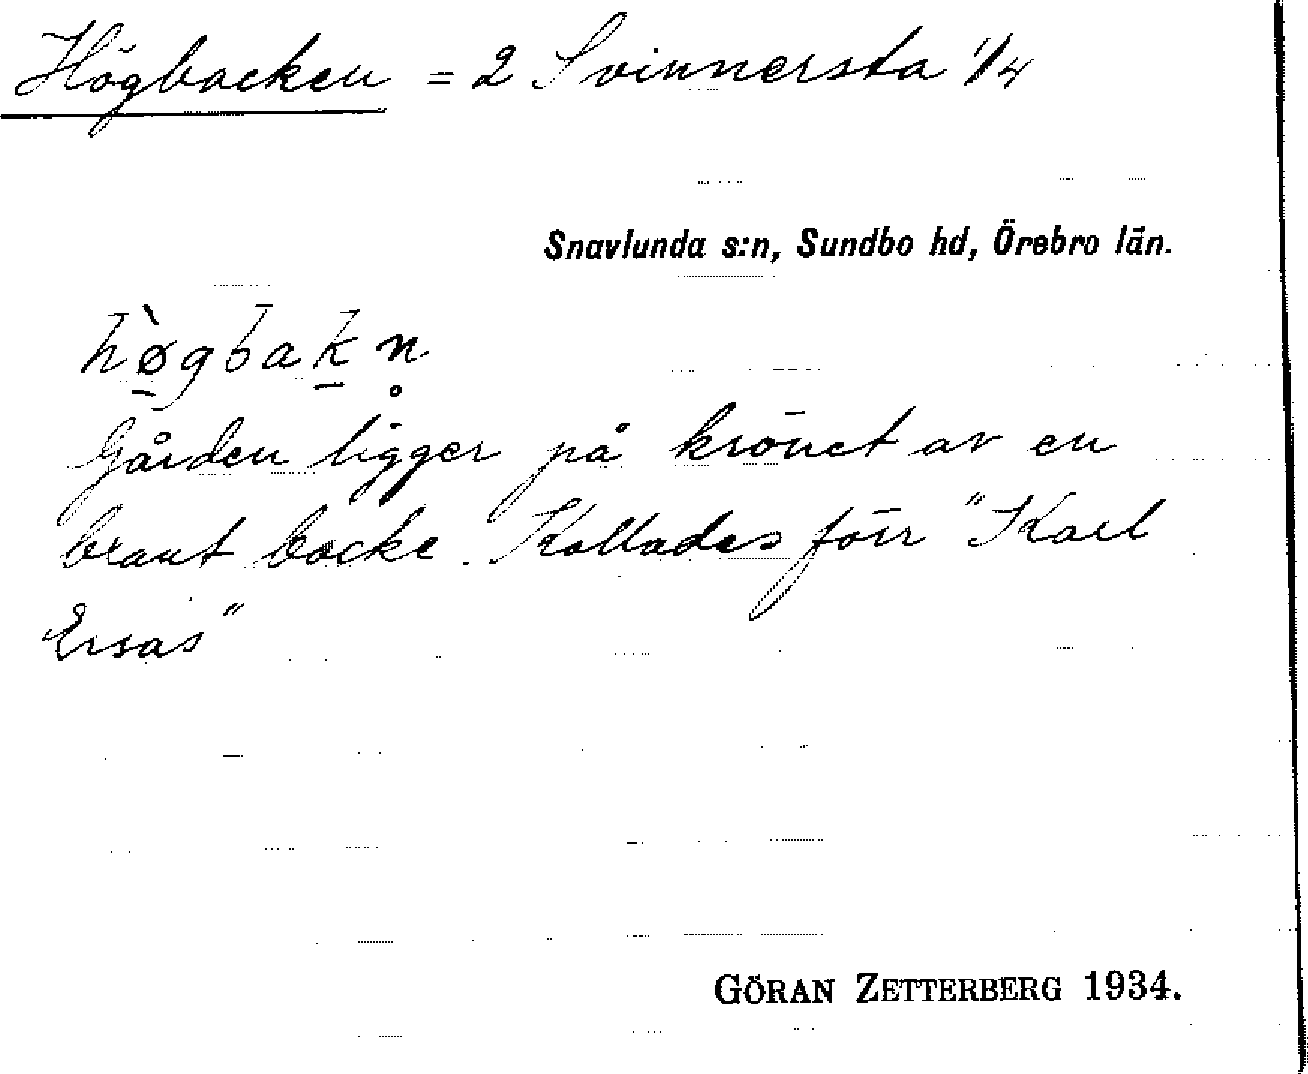 Högbacken = 2 Svinnersta 1/4
Snavlunda s:n, Sundbo hd, Örebro län.
hø̀gbakn̥
Gården ligger på krönet av en
brant backe. Kallades förr "Karl
Ersas"
GÖRAN ZETTERBERG 1934.